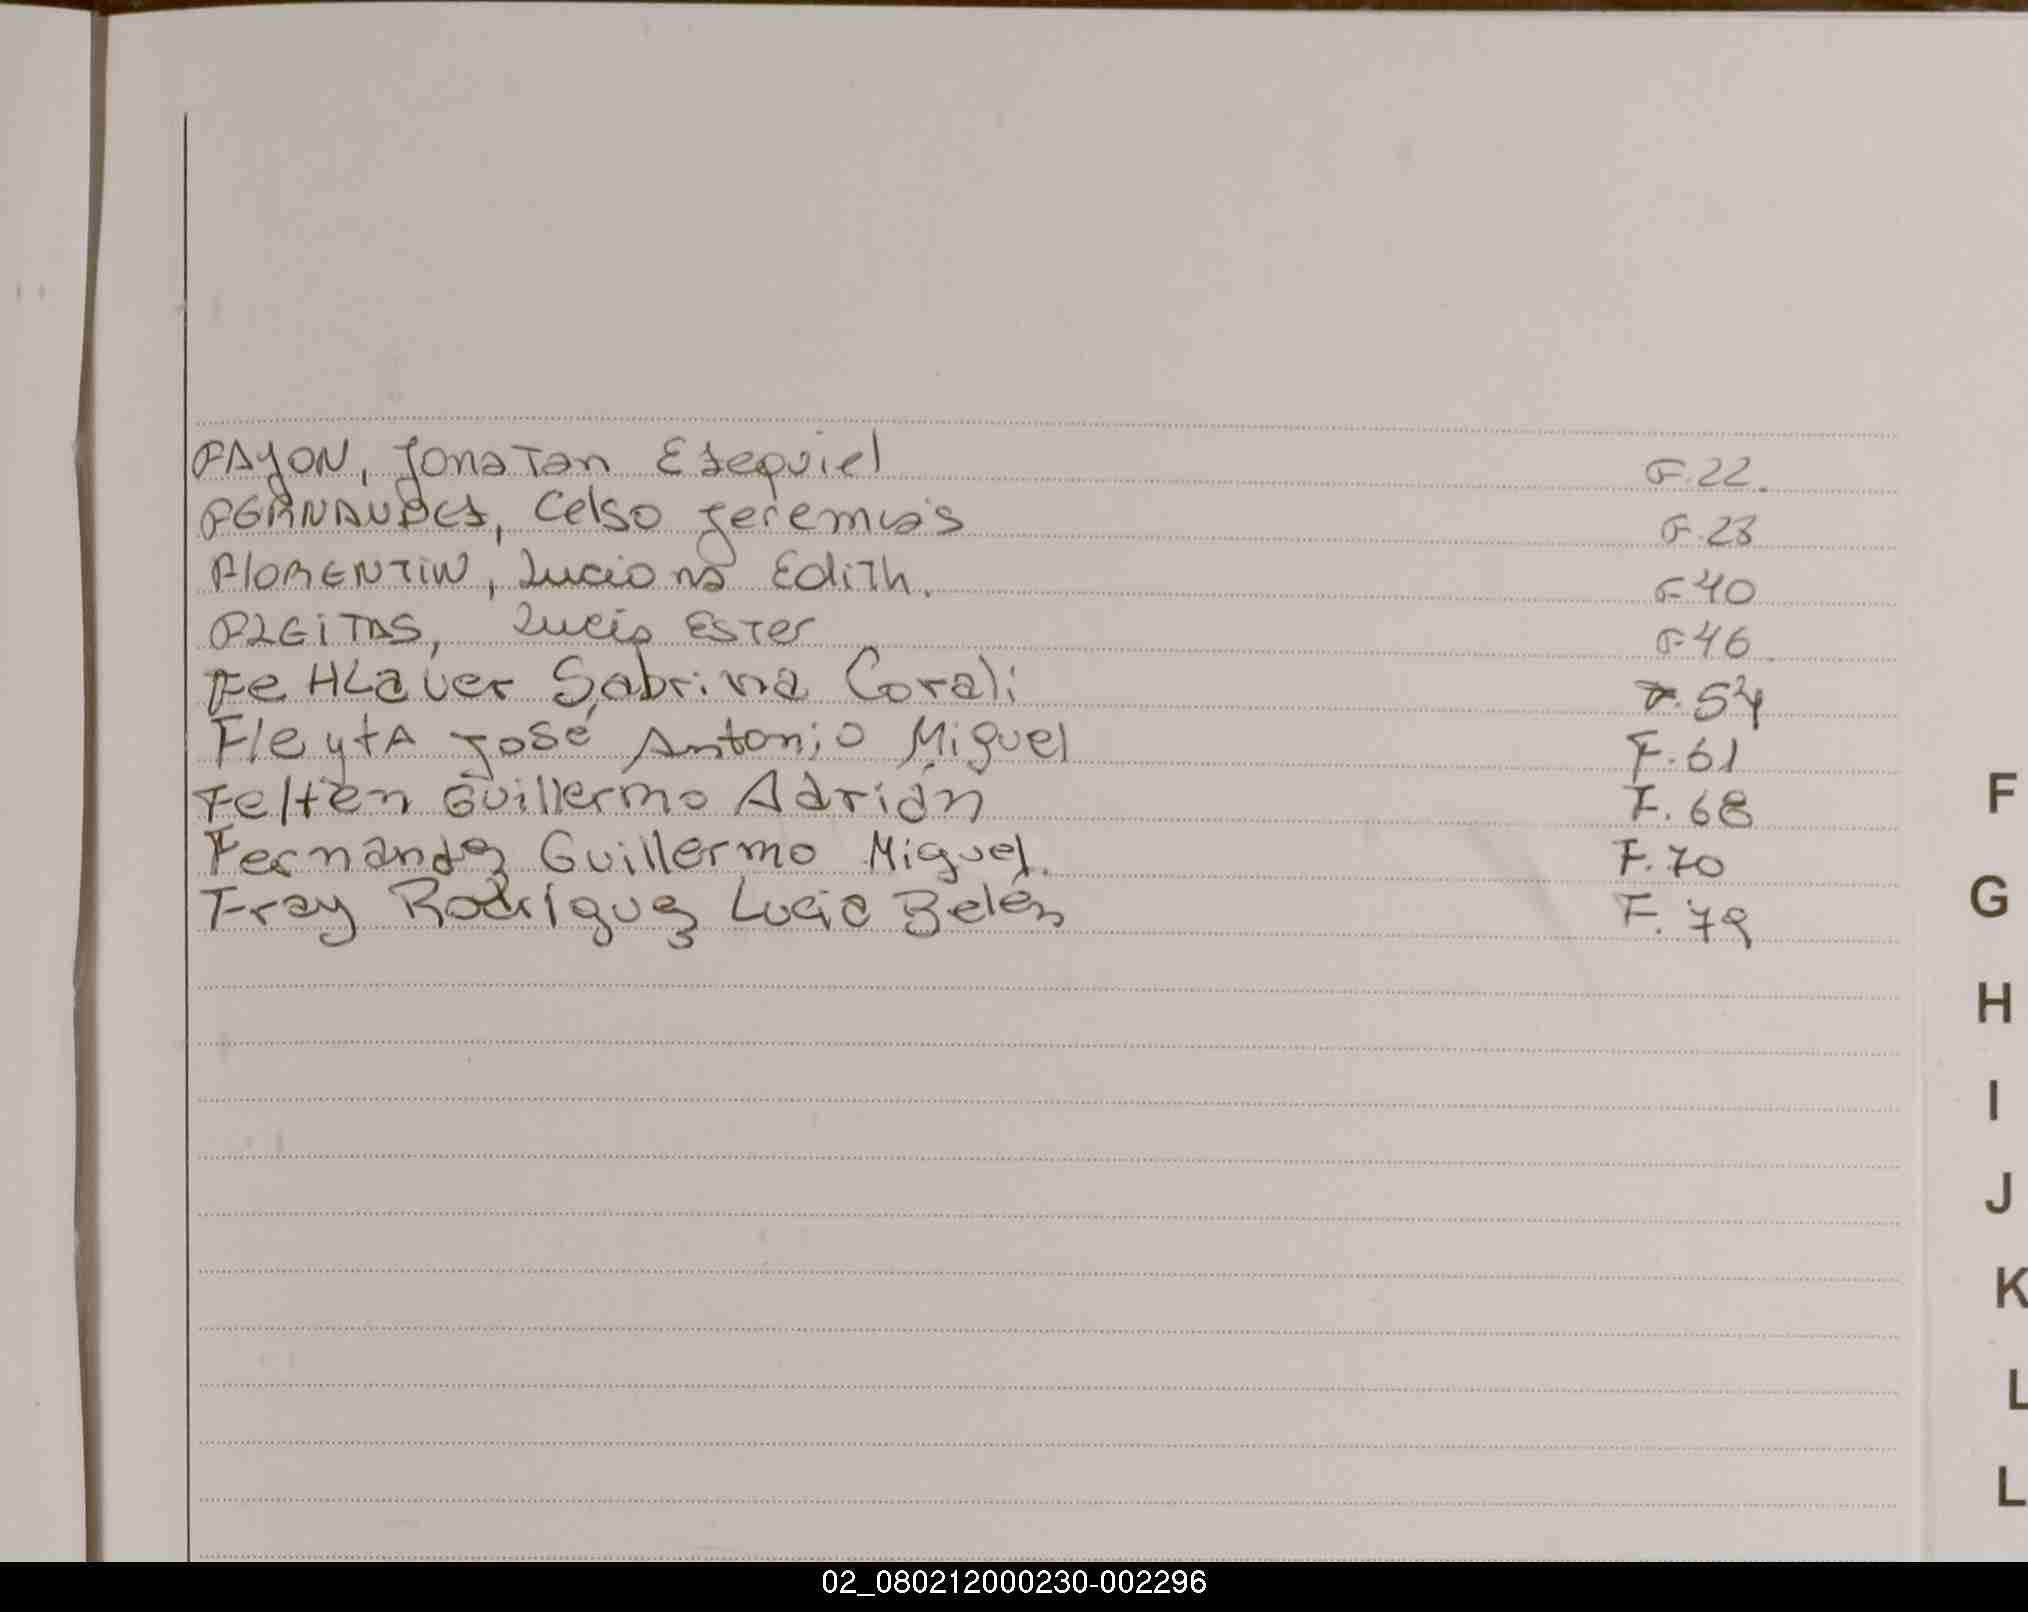 FAYON, Jonatan Ezequiel F.22.
FERNANDES, Celso Jeremias F.23
FlORENTiN, Luciana Edith. F 40
FLEiTAS, Lucia Ester F 46
FeHLauer Sabrina Corali F. 54
FleytA José Antonio Miguel F. 61
Felten Guillermo Adrián F. 68
Fernandez Guillermo Miguel. F. 70
Fray Rodríguez Lucia Belén F. 79
F
G
H
I
J
K
L
L
02_080212000230-002296